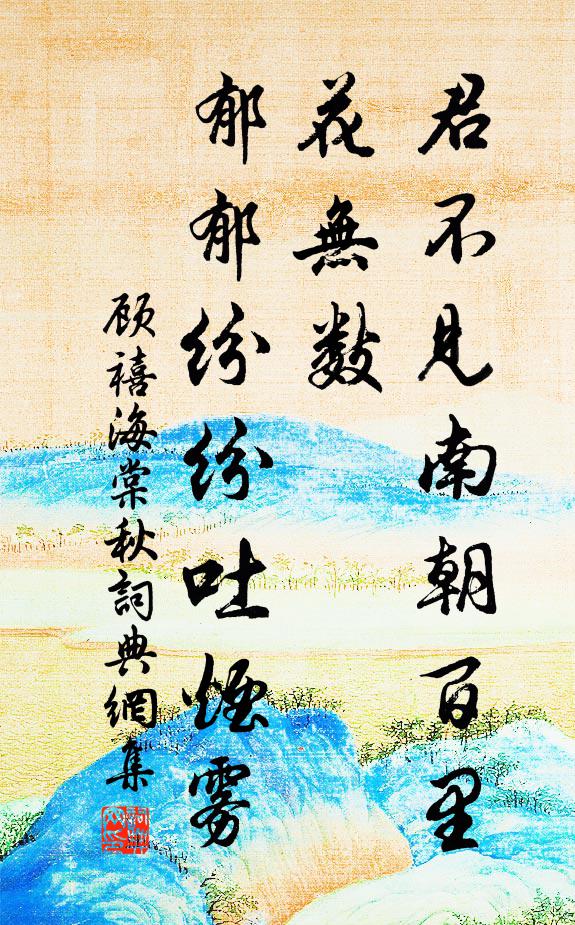 君不見南朝百里
花無數
郁郁紛紛吐煙雾
顾禧海棠秋詞典網集